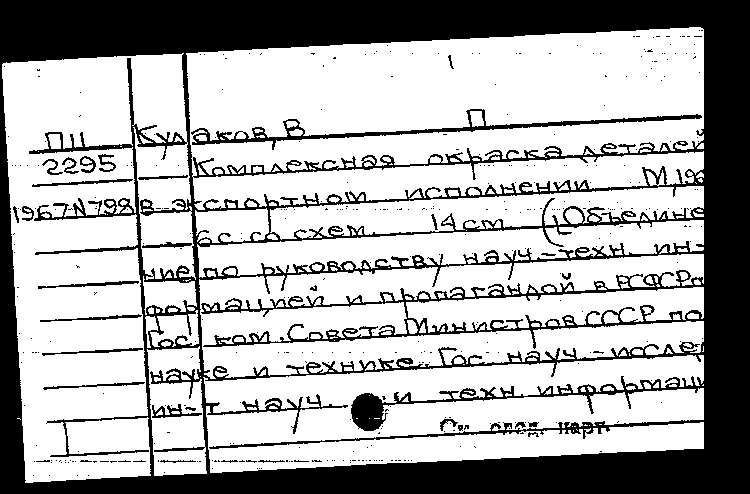 ПII Кулаков, В П
2295 Комплексная окраска деталей
1967N798 в экспортном исполнении М, 196
6с со схем. 14 cm. ([Объедине
ние по руководству науч.-техн. ин-
формацией и пропагандой в РСФСР п
Гос. ком. Совета Министров СССР по
науке и технике. Гос. науч.-исслед
ин-т науч. и техн. информаци
См. след. карт.